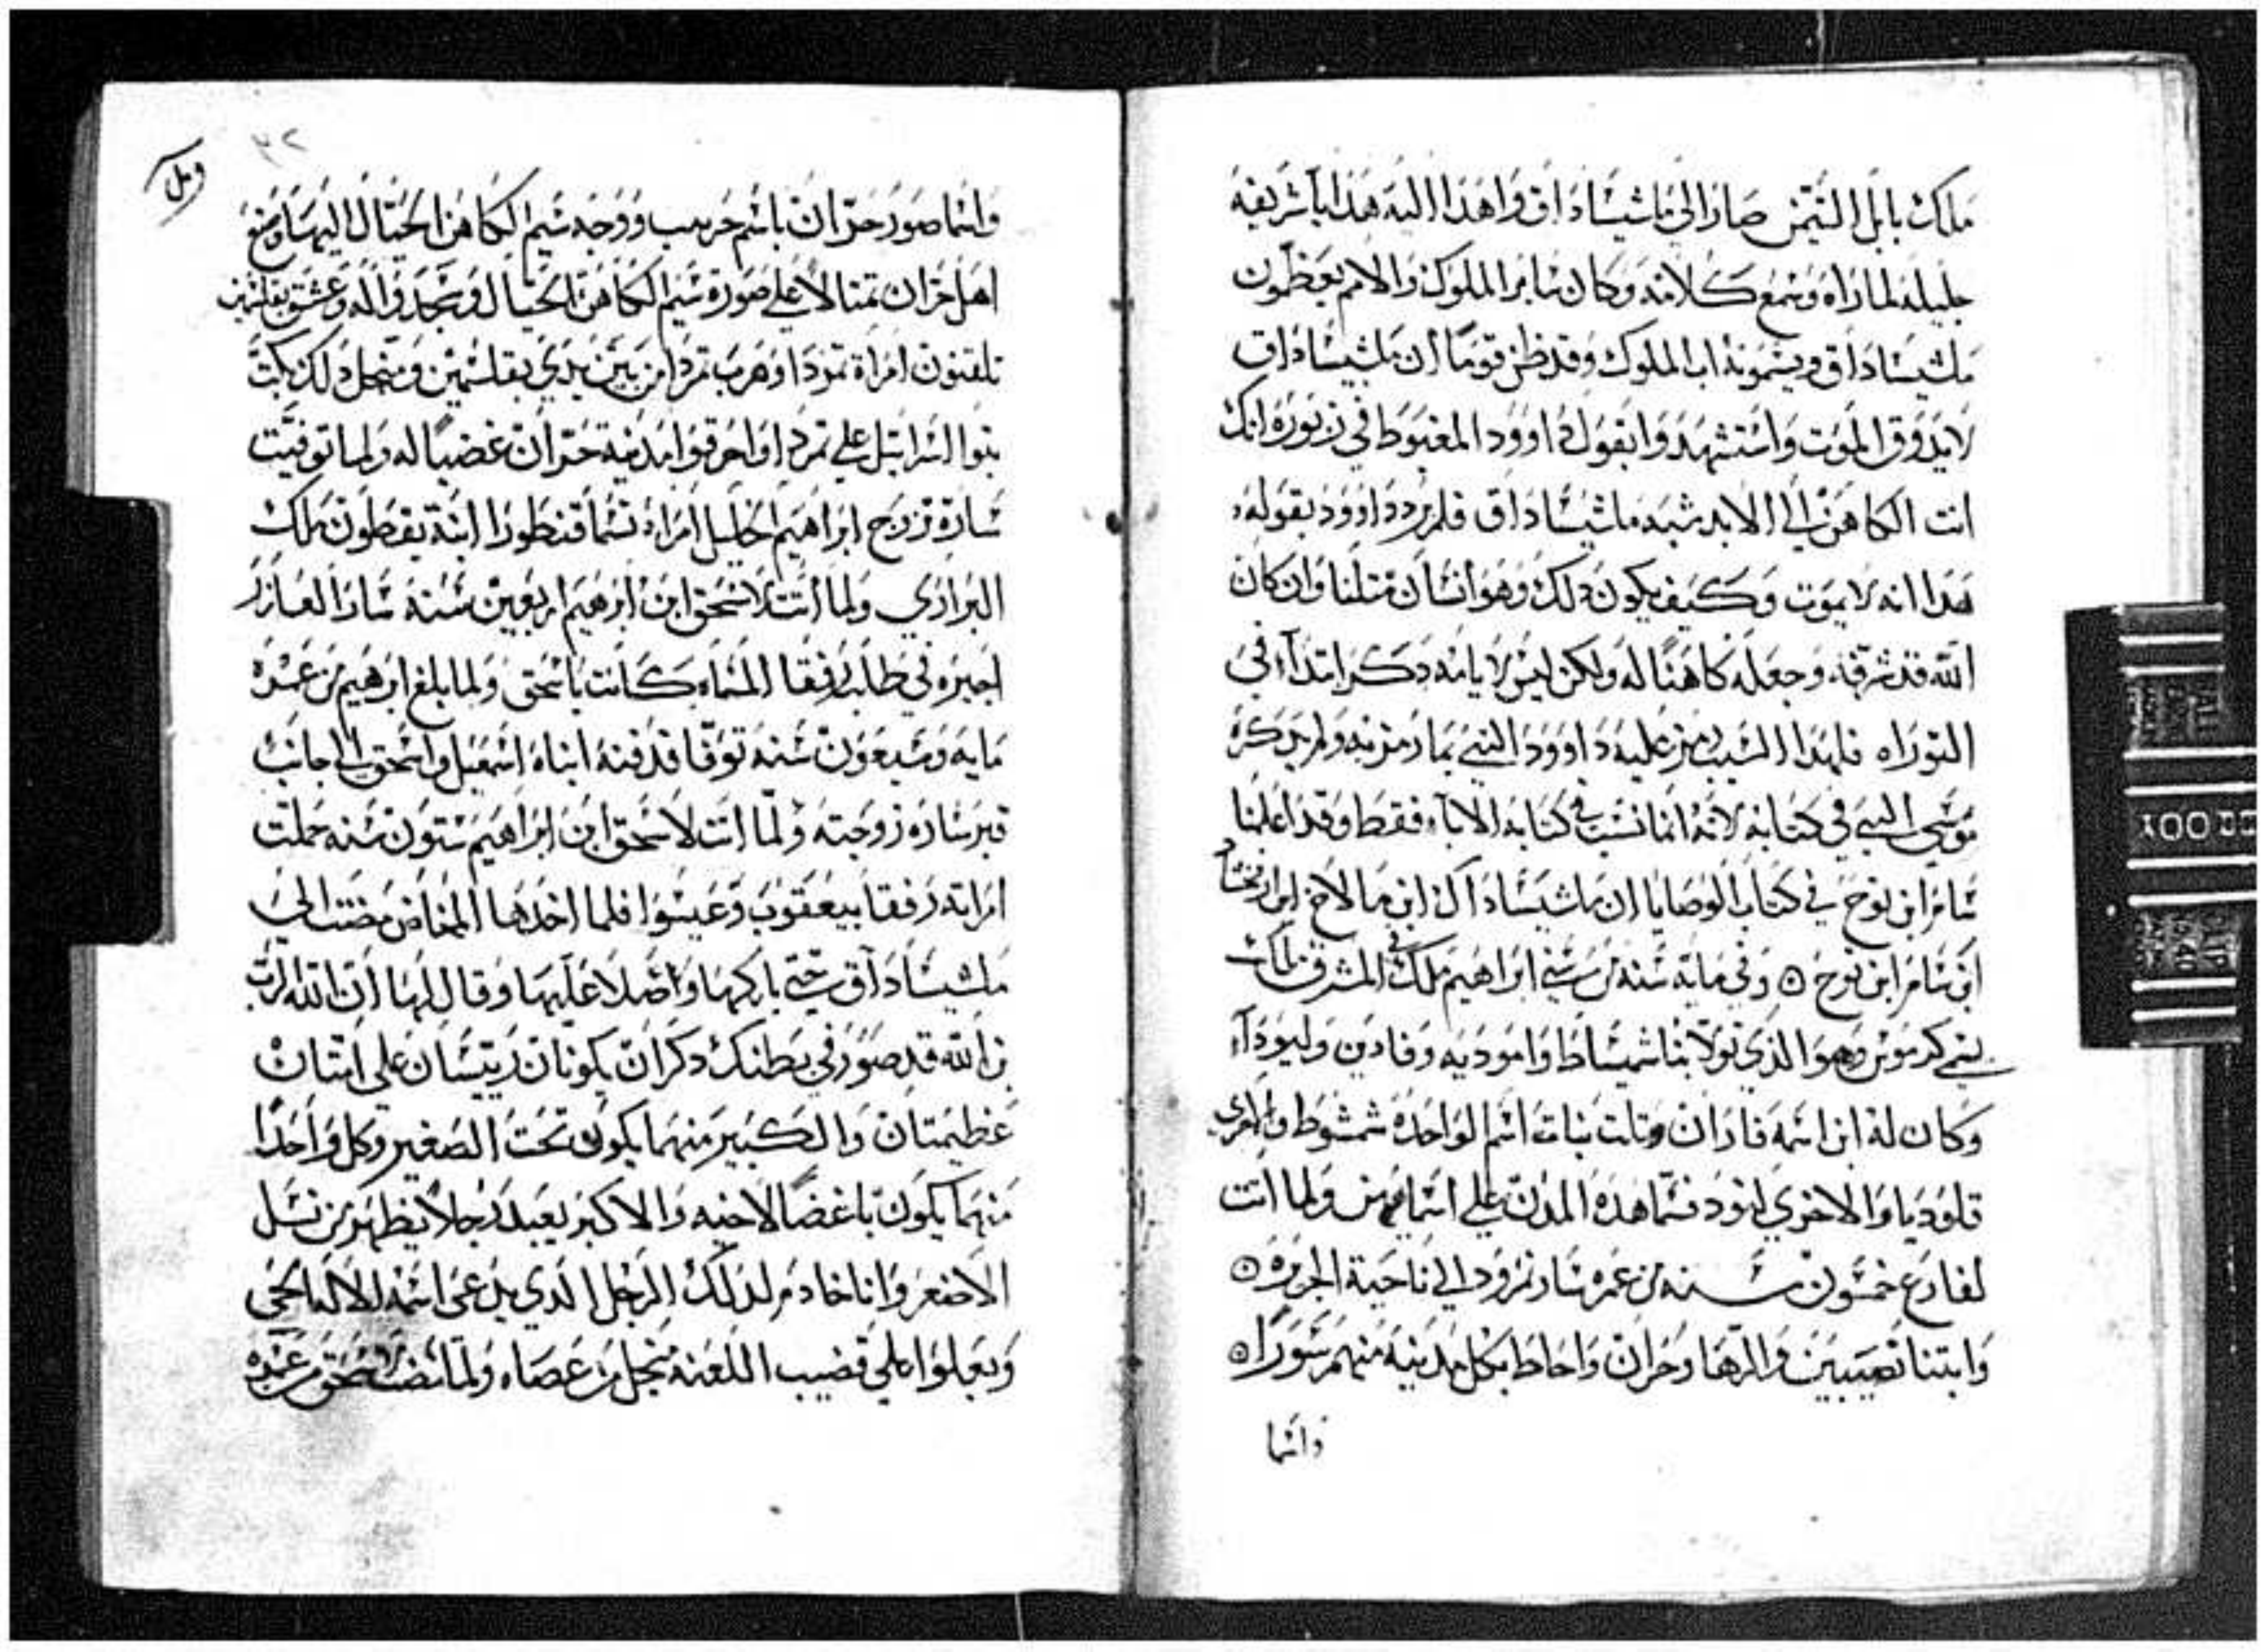 ملك بابل التيمن صار الي ماشيساداق واهدا اليه هدايا شريفه
جليله لما راه وسمع كلامه وكان ساير الملوك والامم يعظمون
ملشيساداق ويسمونه اب الملوك وقد ظن قوما ان ملشيساداق
لا يدوق الموت واستشهدوا بقول داوود المغبوط في زبوره انك
انت الكاهن الي الابد شبه ملشيساداق فلم يرد داوود بقوله
هدا انه لا يموت وكيف يكون دلك وهو انسان متلنا وان كان
الله قد شرفه وجعله كاهنا له ولكن ليس لايامه دكر ابتدآء في
التوراه فلهدا السبب رمز عليه داوود النبي بما رمز به ولم يدكره
موسي النبي في كتابه لانه انما نسب في كتابه الاباء فقط وقد اعلمنا
سام ابن نوح في كتاب الوصايا ان ملشيساداق ابن مالاخ ابن ارفخشاد
ابن سام ابن نوح ۞ وفي مايه سنه من سني ابراهيم ملك في المشرق ملك
يسمي كرموس وهو الذي تولا بنا شميساط وامودیه وفادين وليودآء
وكان له ابن اسمه فاران وتلت بنات اسم الواحده شمشوط والاخري
قلوديا والاخري لنود فسما هده المدن علي اسمايهن ولما اتت
لفارع خمسون سنه من عمره سار نمرود الي ناحية الجزيره ۞
وابتنا نصيبين والرها وحران واحاط بكل مدينه منهم سورا ۞
واسما
ومل
٣٢
واسما صور حران باسم حرسب ووجه شيم الكاهن الجبال اليها وصنع
اهل حران تمتالا علي صورة شيم الكاهن الجبال وسجدوا له وعشق بعلشمين
تلقنون امراة تمودا وهرب تمردا من بين يدي بعلشمين ومن اجل دلك بكت
بنوا اسراييل علي تمردا واحرقوا مدينة حران غضبا له ولما توفيت
سارة تزوج ابراهيم الخليل امراه تسما قنطورا ابنة يقطون ملك
البراري ولما اتت لاسحق ابن ابرهيم اربعين سنه سار العازر
اجيره في طلب رفقا المسماه كانت باسحق ولما بلغ ابرهيم من عمره
مايه وسبعون سنه توفا فدفنه ابناه اسمعيل واسحق الي جانب
قبر ساره زوجته ولما اتت لاسحق ابن ابراهيم ستون سنه حملت
امراته رفقا بيعقوب وعيسوا فلما اخدها المخاض مضت الي
ملشيساداق حتي باركها واصلا عليها وقال لها ان الله الرب
من الله قد صور في بطنك دكران يكونان ريسان علي امتان
عظيمتان والكبير منهما يكون تحت الصغير وكل واحدا
منهما يكون باغضا لاخيه والاكبر يعبد رجلا يظهر من نسل
الاصغر وانا خادم لدلك الرجل الدي يدعي اسمه الالاه الحي
ويعلوا علي قضيب اللعنه من اجل من عصاه ولما مضت لاسحق من عمره